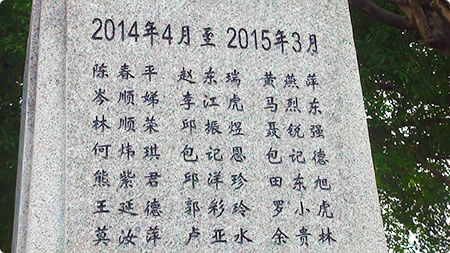 2014年4月至2015年3月
陈春平 赵东瑞 黄燕萍
岑顺娣 李江虎 马烈东
林顺荣 邱振煜 聂锐强
何炜琪 包记恩 包记德
熊紫君 邱洋珍 田东旭
王延德 郭彩玲 罗小虎
莫汝萍 卢亚水 余贵林